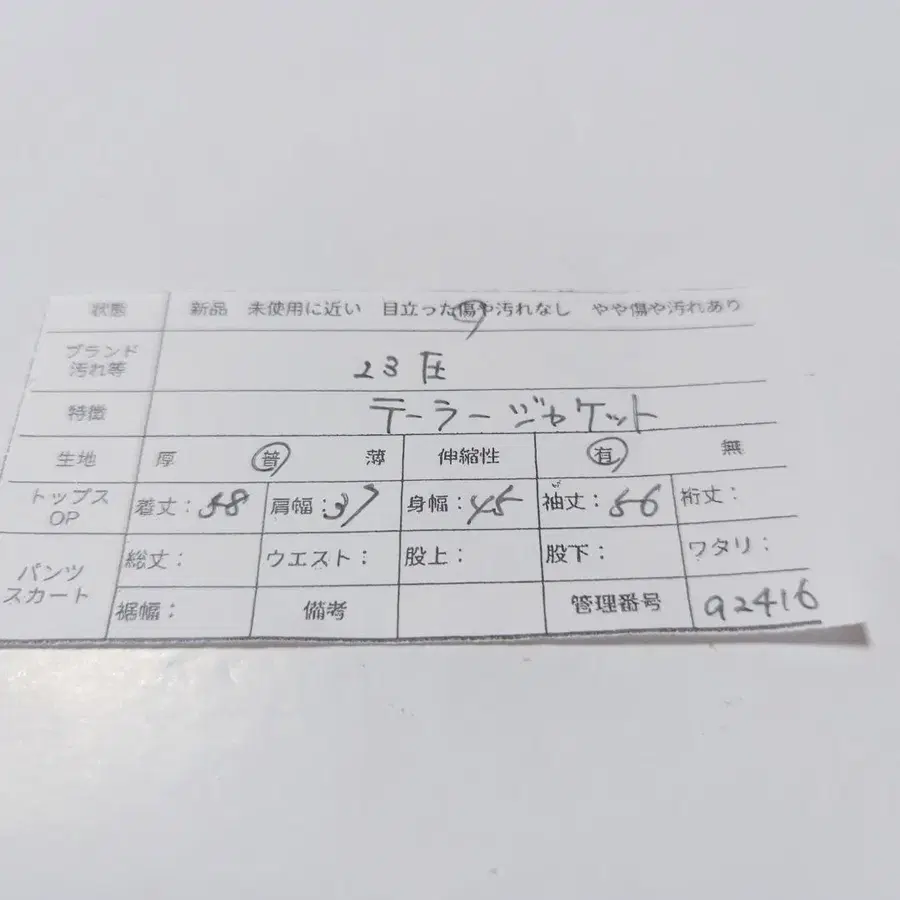 状態 新品 未使用に近い 目立った傷や汚れなし やや傷や汚れあり
ブランド
汚れ等 23区
特徴 テーラージャケット
生地 厚 普 薄 伸縮性 有 無
トップス
OP 着丈：58 肩幅：37 身幅：45 袖丈：56 裄丈：
パンツ
スカート 総丈： ウエスト： 股上： 股下： ワタリ：
裾幅： 備考 管理番号 a2416